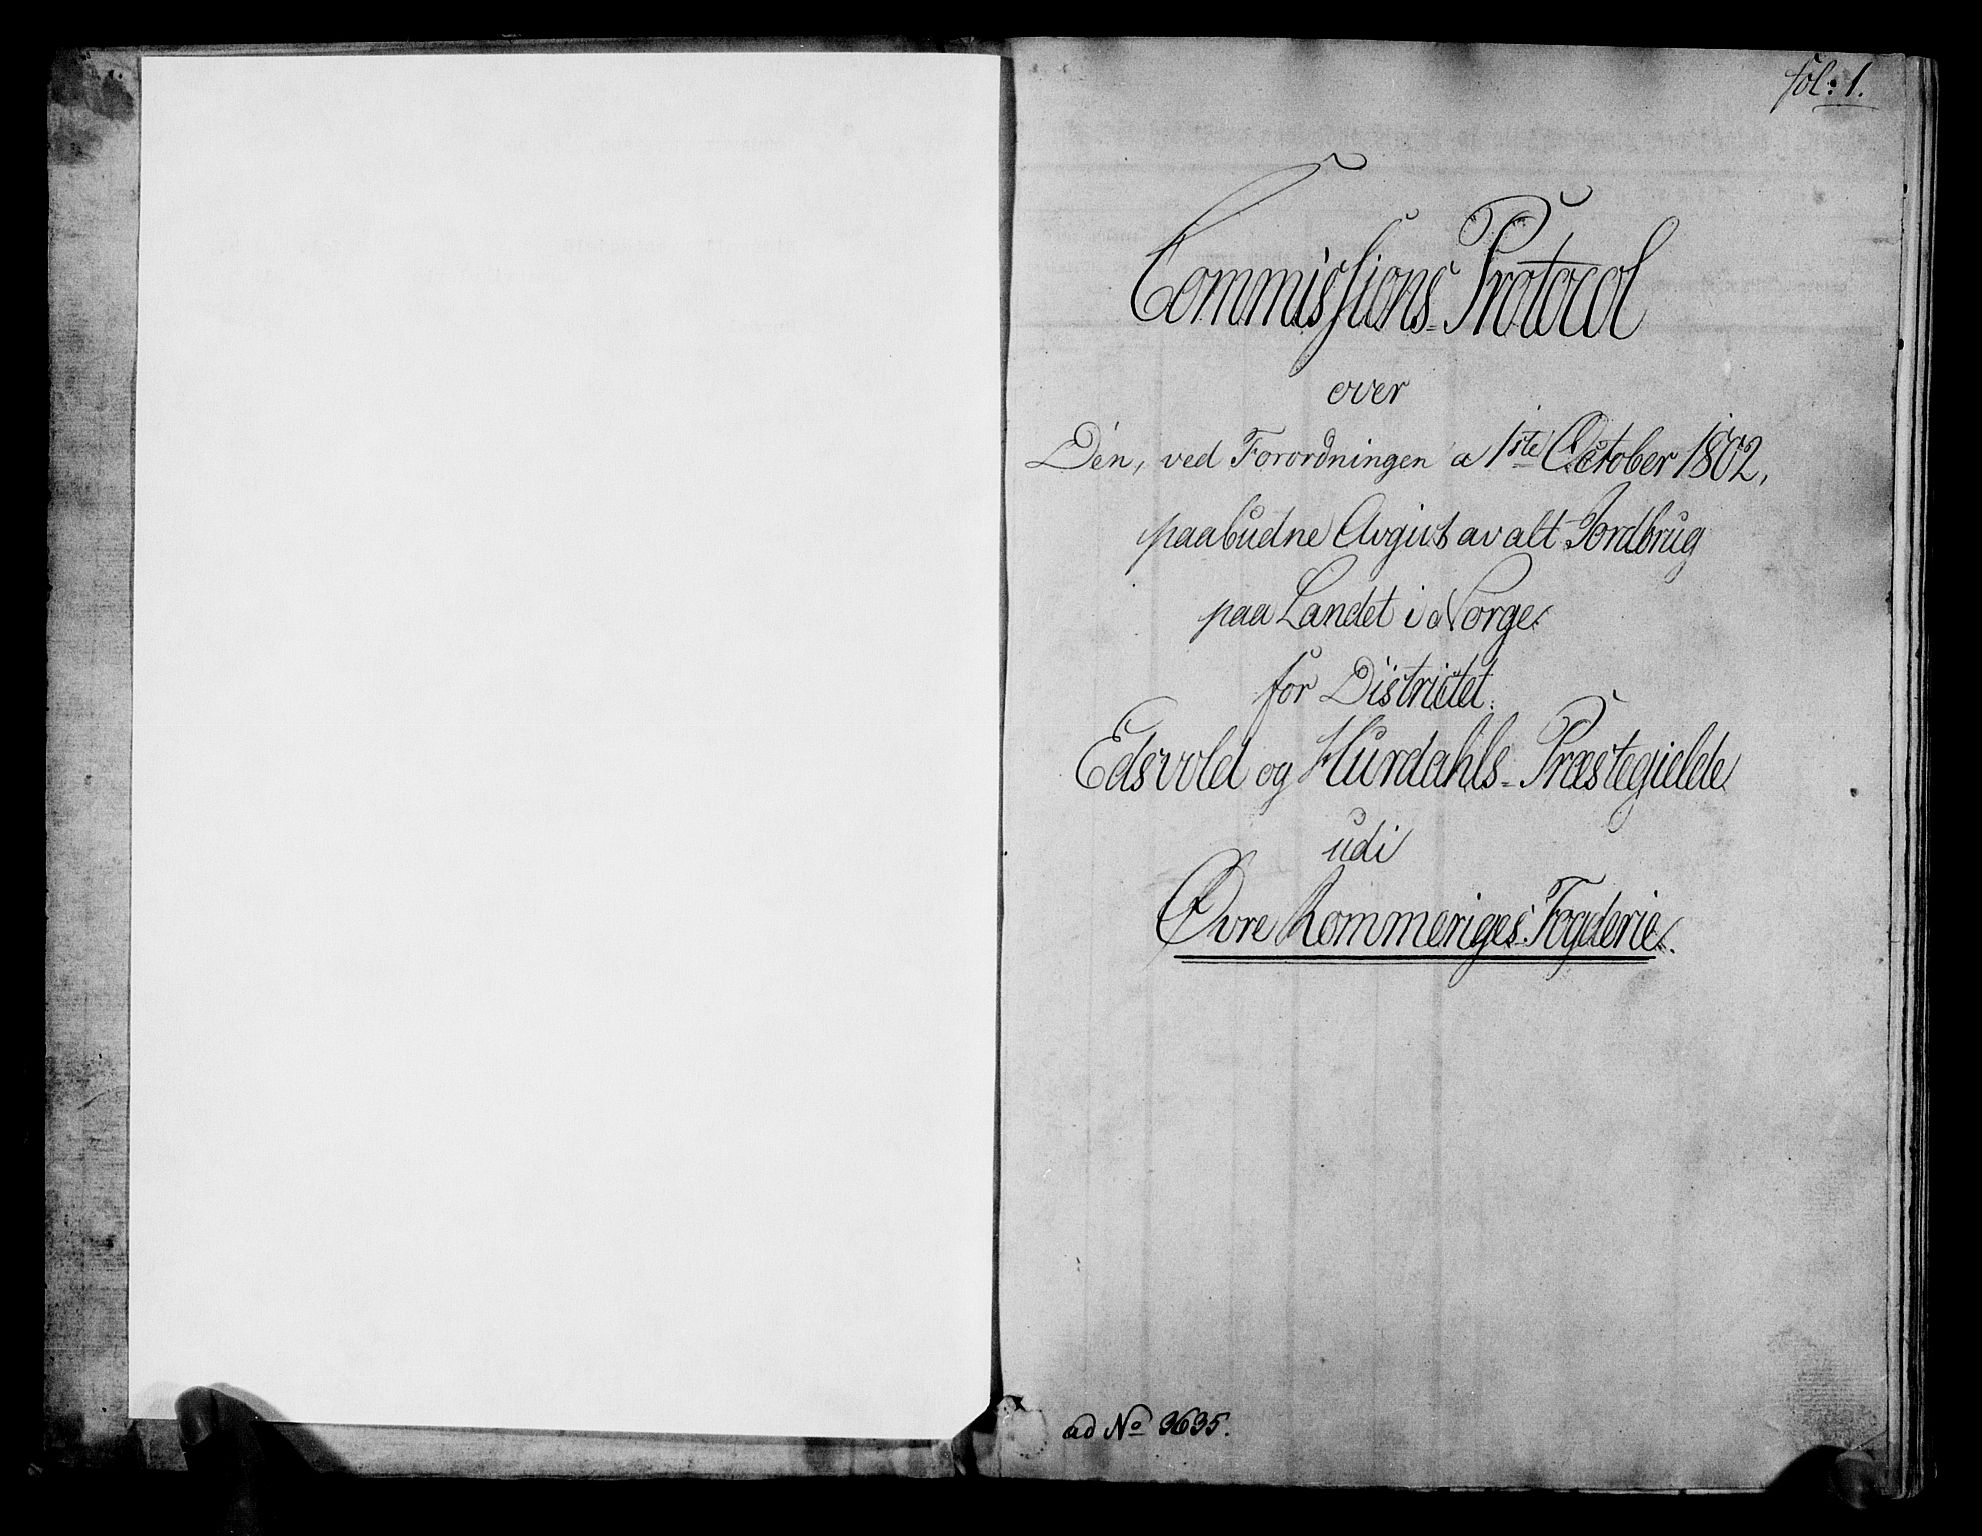 fol: 1.
Commissions-Protocol
over
Den, ved Forordningen a 1ste October 1802,
paabudne Avgivt av alt Jordbrug
paa Landet i Norge.
for Districtet.
Edsvold og Hurdahls-Præstegielde
udi
Øvre Rommeriges-Fogderie.
ad No 3635.